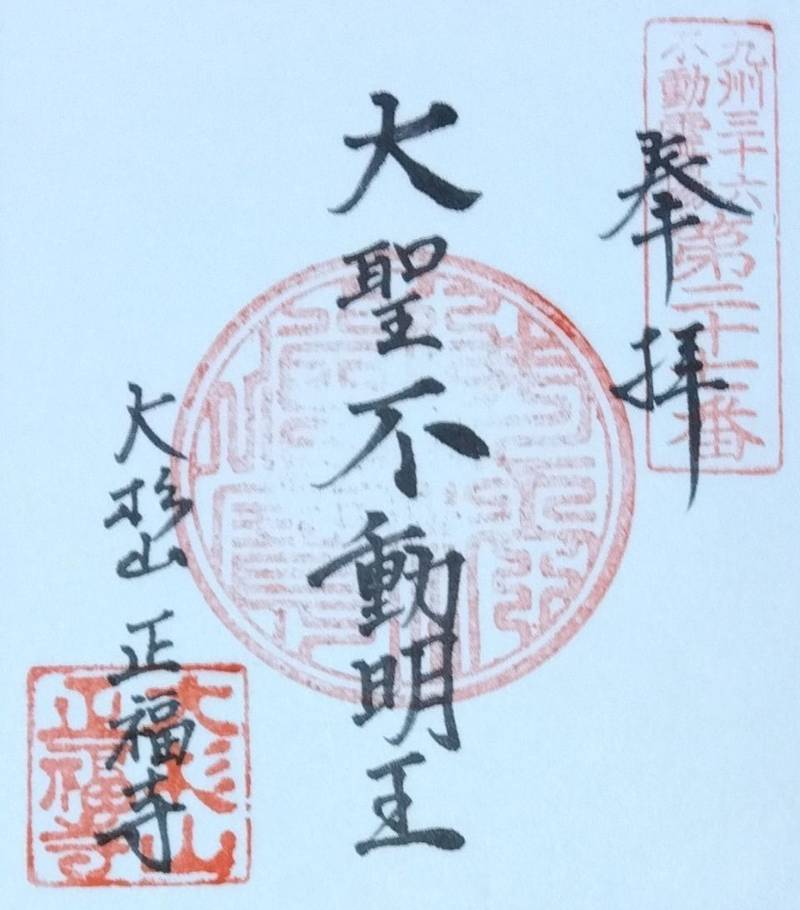 九州三十六
不動霊場
第二十番
奉拝
大聖不動明王
大杉山 正福寺
大杉山
正福寺